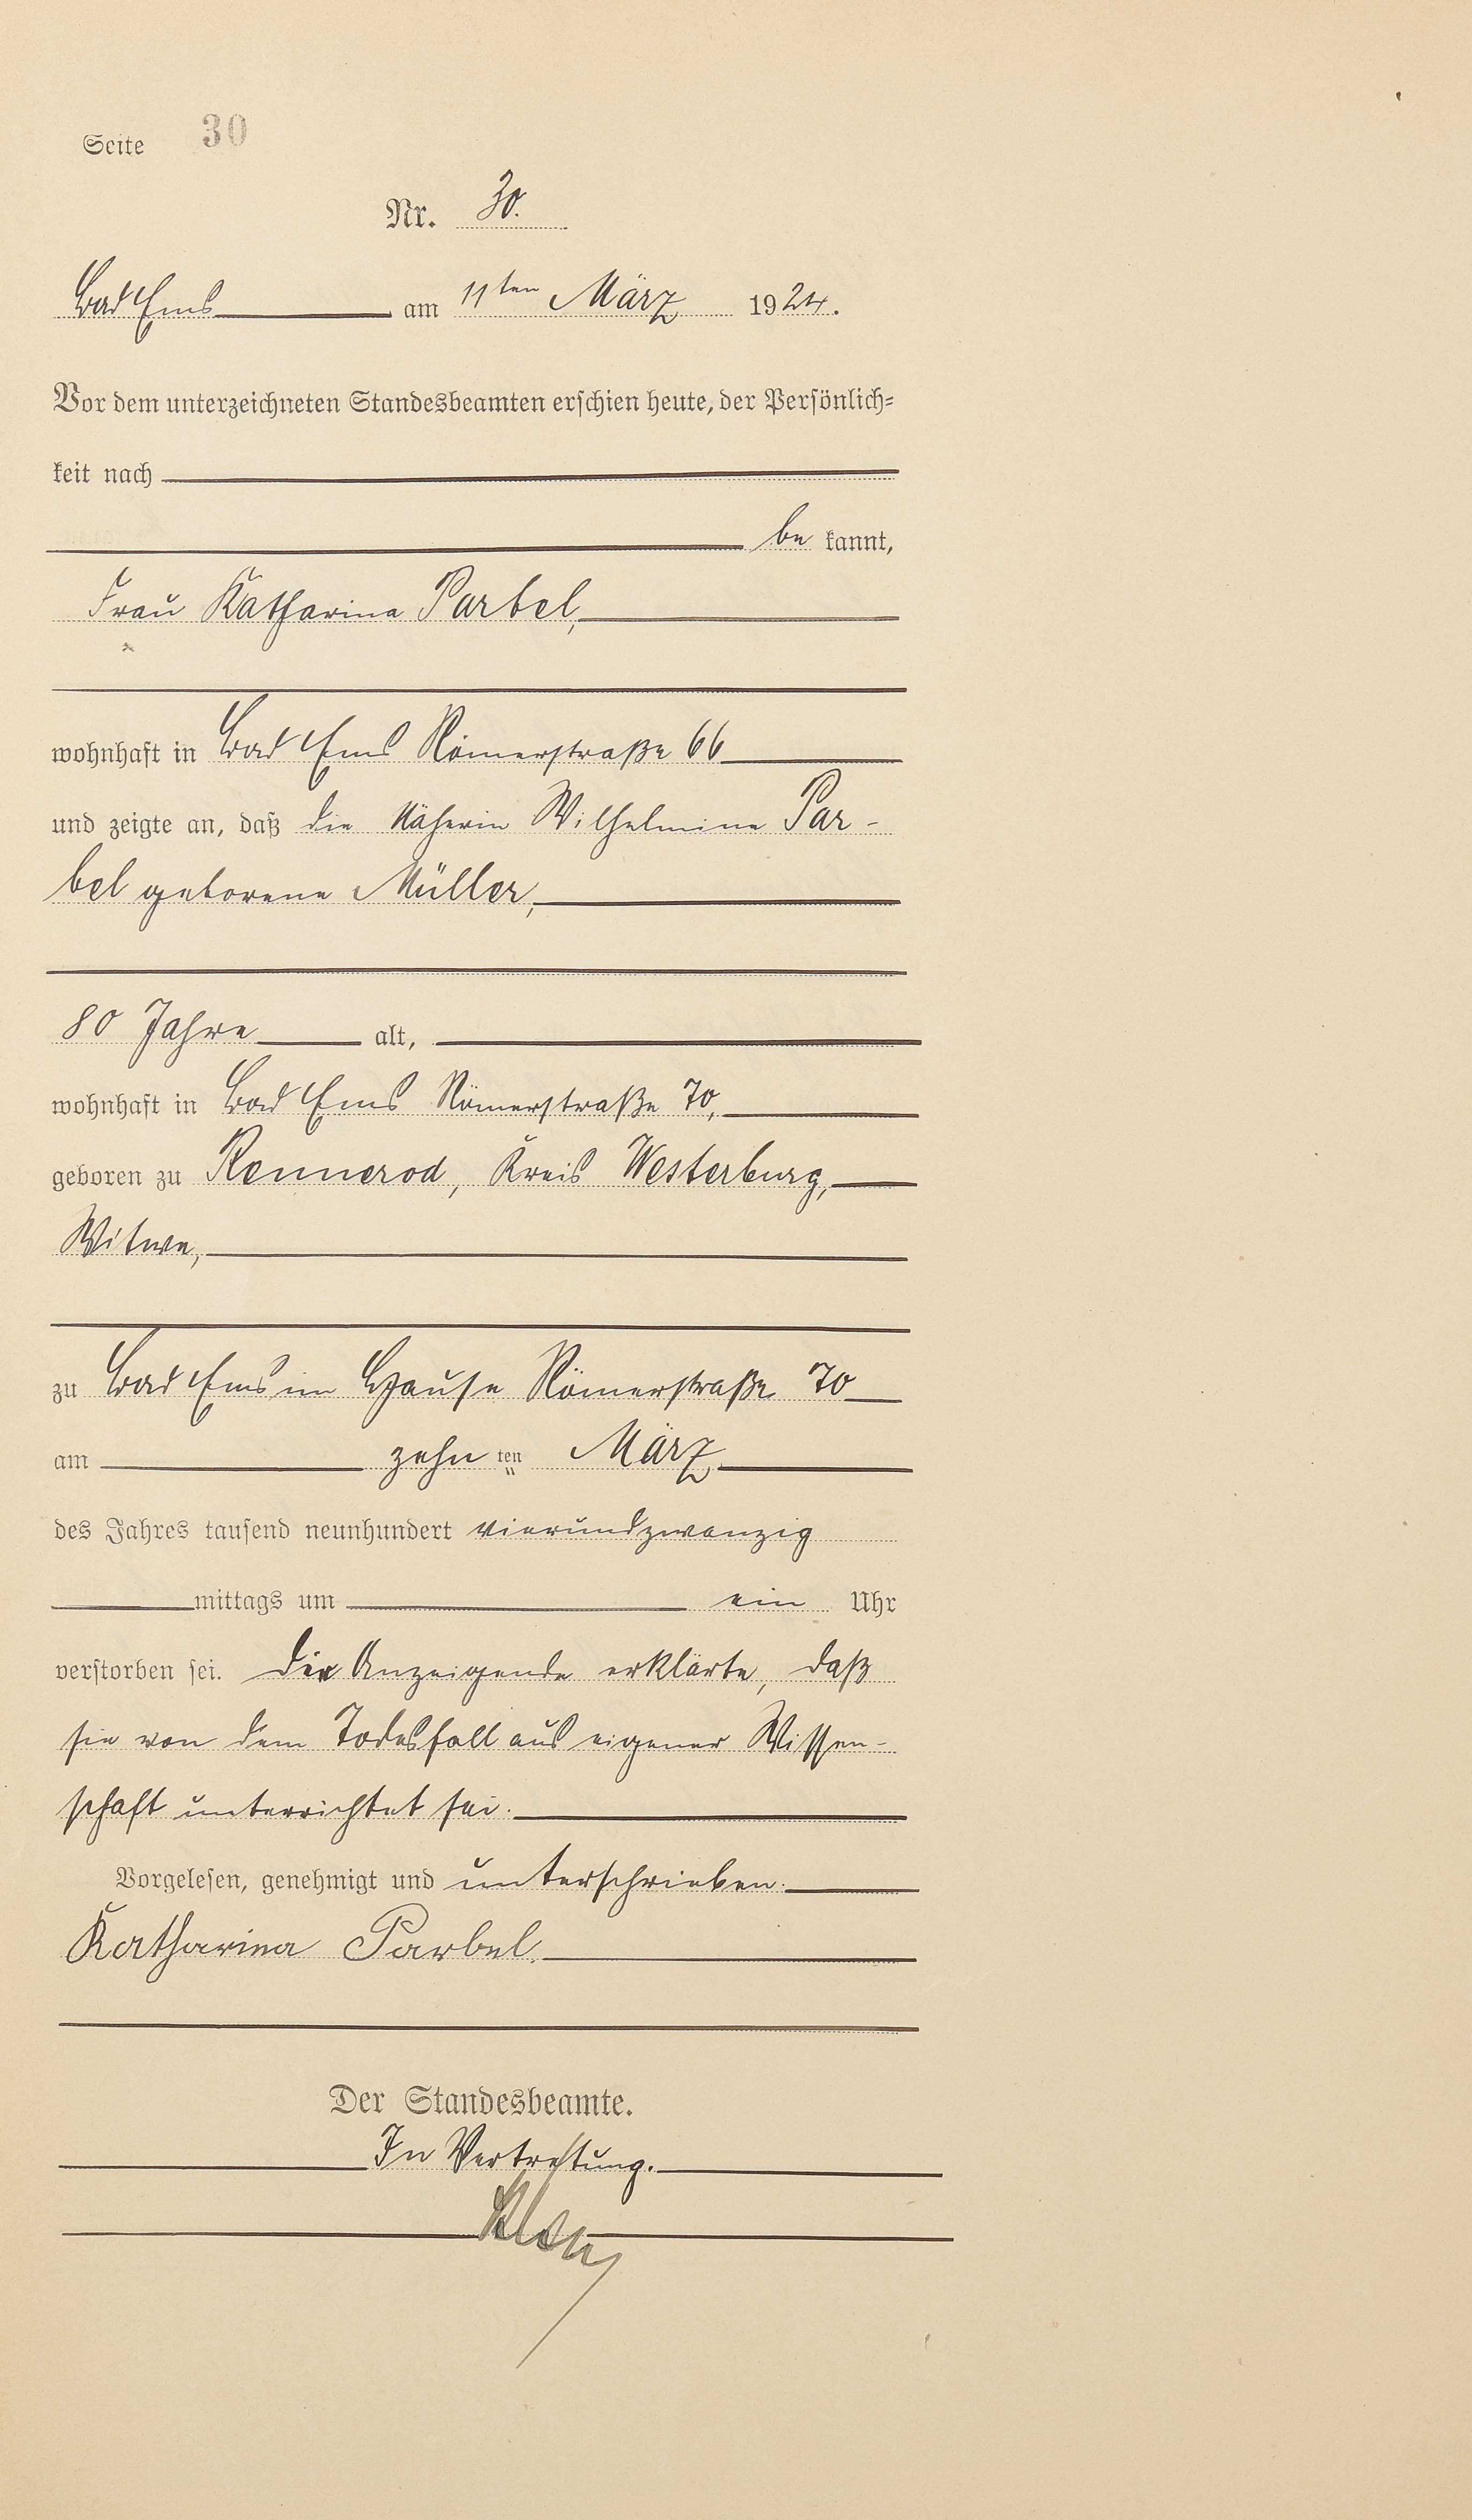 Seite 30
Nr. 30.
Bad Ems am 11ten März 1924.
Vor dem unterzeichneten Standesbeamten erschien heute, der Persönlich-
keit nach
be kannt,
Frau Katharina Parbel,
wohnhaft in Bad Ems Römerstraße 66
und zeigte an, daß die Näherin Wilhelmine Par-
bel geborene Müller,
80 Jahre alt,
wohnhaft in Bad Ems Römerstraße 70,
geboren zu Rennerod, Kreis Westerburg,
Witwe,
zu Bad Ems im Hause Römerstraße 70
am zehn ten März
des Jahres tausend neunhundert vierundzwanzig
mittags um ein Uhr
verstorben sei. Die Anzeigende erklärte, daß
sie von dem Todesfall aus eigener Wissen-
schaft unterrichtet sei.
Vorgelesen, genehmigt und unterschrieben.
Katharina Parbel.
Der Standesbeamte.
In Vertretung.